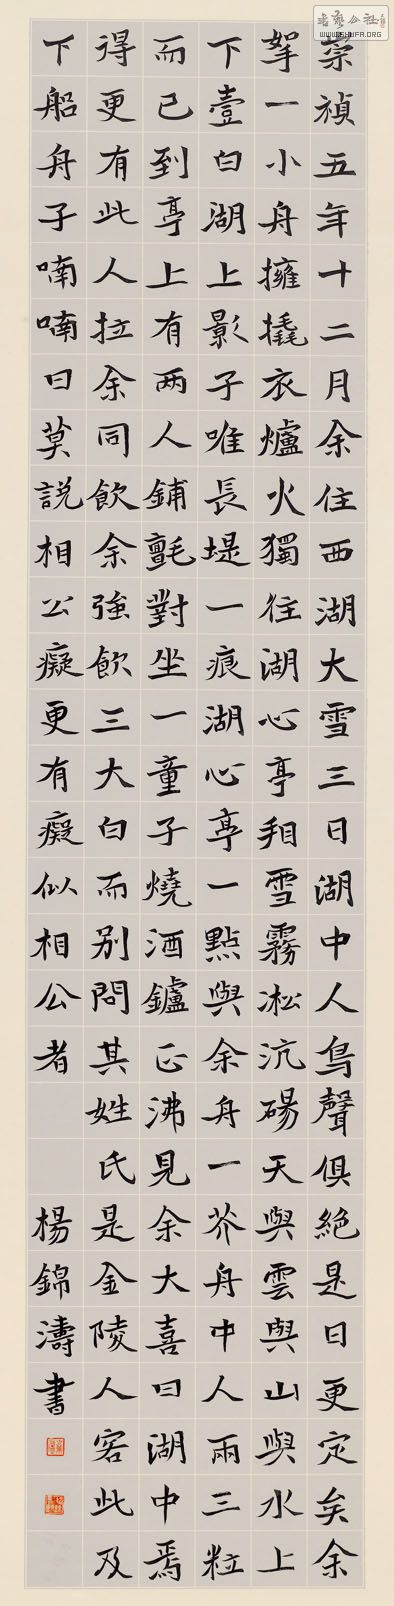 書藝公社
WWW.SHUFA.ORG
崇禎五年十二月余住西湖大雪三日湖中人鳥聲俱絕是日更定矣余
拏一小舟擁撬衣爐火獨往湖心亭雪霧凇沆碭天與雲與山與水上
下壹白湖上影子唯長堤一痕湖心亭一點與余舟一芥舟中人兩三粒
而已到亭上有两人鋪氈對坐一童子燒酒鑪正沸見余大喜曰湖中焉
得更有此人拉余同飲余強飲三大白而別問其姓氏是金陵人客此及
下船舟子喃喃曰莫説相公癡更有癡似相公者 楊錦濤書